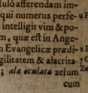 sulo afferendam im-
qui numerus perfe-
intelligit vim & po-
m, quæ est in Ange-
n Evangelicæ prædi-
gilitatem & alacrita
ista oculata zelum
cum